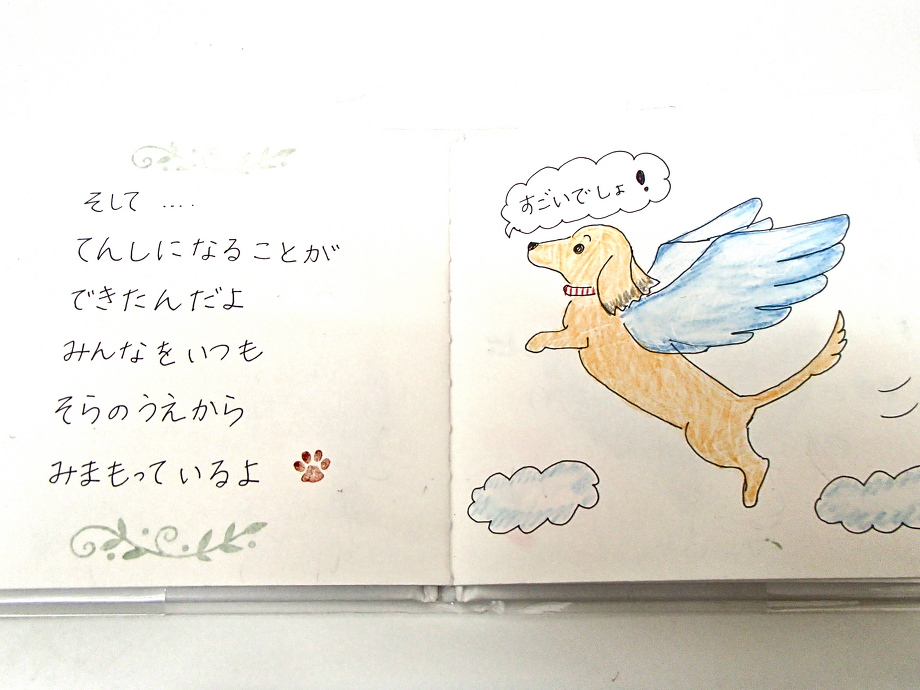 そして ....
てんしになることが
できたんだよ
みんなをいつも
そらのうえから
みまもっているよ
すごいでしょ!